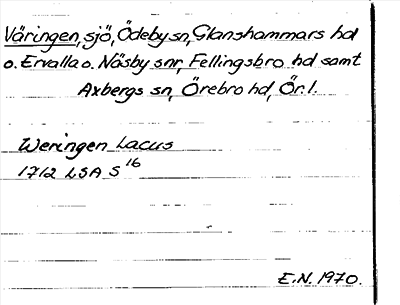 Väringen, sjö, Ödeby sn, Glanshammars hd
o. Ervalla o. Näsby snr, Fellingsbro hd samt
Axbergs sn, Örebro hd, Ör. l.
Weringen Lacus
1712 LSA S 16
E.N. 1970.